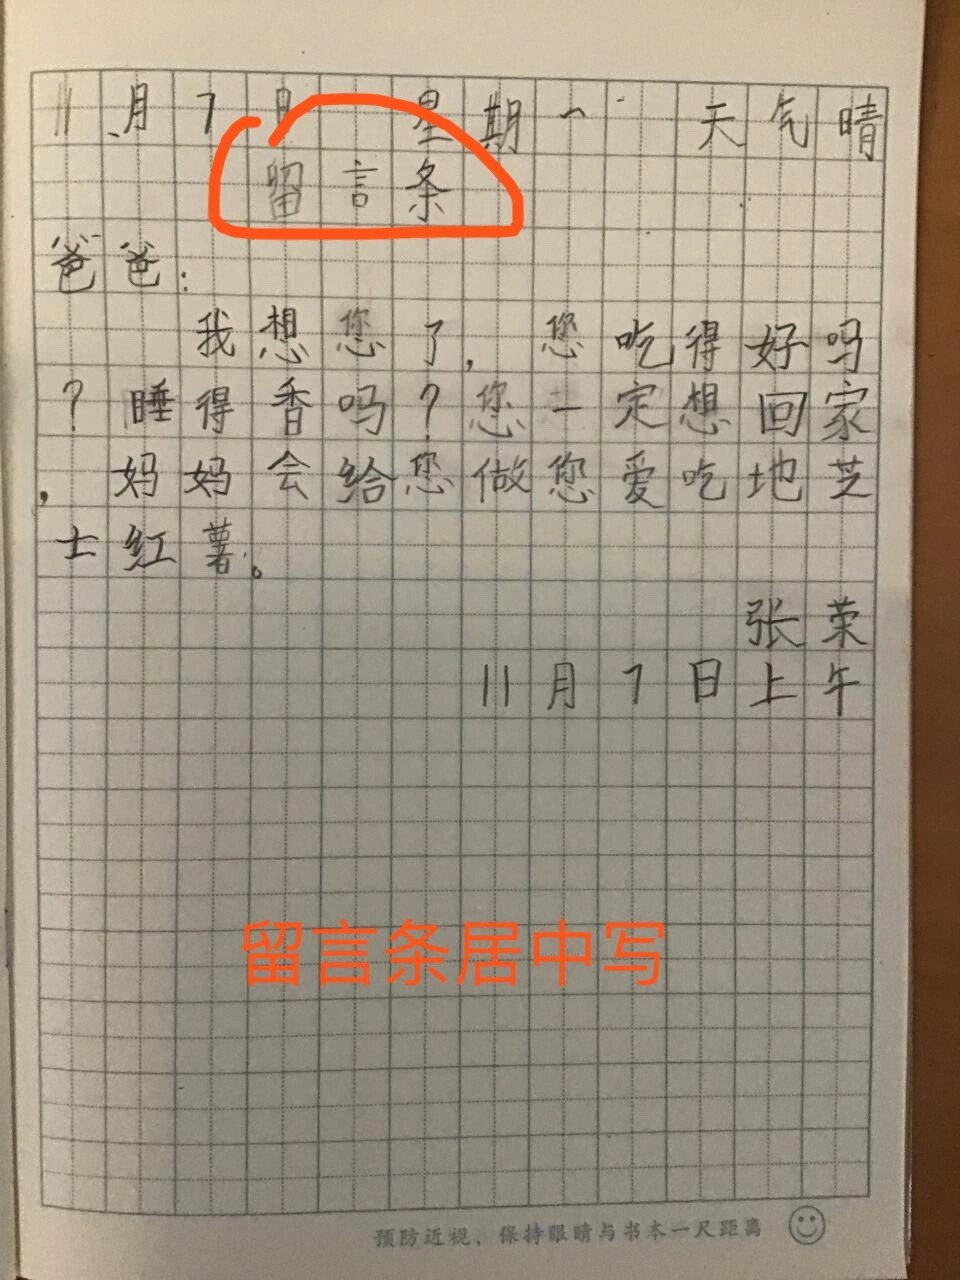 11月7日 星期一 天气晴
留言条
爸爸:
我想您了,您吃得好吗
?睡得香吗?您一定想回家
,妈妈会给您做您爱吃地芝
士红薯。
张荣
11月7日上午
留言条居中写
预防近视，保持眼睛与书本一尺距离